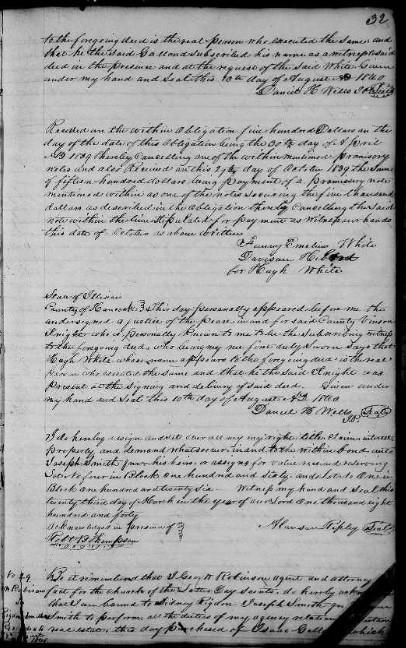 32
to the foregoing deed is the real person who executed the same and
that he the said Galland subscribed his name as a witness to said
deed in the presence and at the request of the said White Given
under my hand and Seal this 10th day of August AD 1840
Daniel H Wells JP Seal
Received on the within Obligation five hundred Dollars on the
day of the date of this Obligation being the 30th day of April
AD 1839 thereby Cancelling one of the within mentioned promisory
notes and also Received on this 24th day of October 1839 the Sum
of fifteen hundred dollars being payment of a promisory note
mentioned within as one of the notes securing the five thousand
dollars as described in the obligation thereby Cancelling the said
note within the time Stipulated for payment as witness our hands
this date of October as above written
White
Davison
for Hugh White
State of Illinois
County of Hancock This day personally appeared before me the
undersigned a Justice of the peace in and for said County Vinson
Knight who is personally known to me to be the Subscribing witness
to the foregoing deed, who being by me first duly Sworn Says that
Hugh White whose name appears to the foregoing deed is the real
person who executed the same and that he the said Knight was
present at the signing and delivery of said deed. Given under
my hand and Seal this 10th day of August AD 1840
Daniel H Wells
JP Seal
I do hereby assign and set over all my right title Claim interest
property and demand whatsoever in and to the within Bond unto
Joseph Smith Junr his heirs or assigns for value received reserving
Lot four in Block one hundred and Sixty and Lot One in
Block one hundred and twenty Six Witness my hand and Seal this
twenty third day of March in the year of our Lord One thousand eight
hundred and forty
Acknowledged in presence of
Robt B Thompson
Alanson Ripley Seal
Be it remembered that I Geo W Robinson agent and attorney
in fact for the church of the Latter Day Saints, do hereby
that I am bound to Sidney Rigdon Joseph Smith
Smith to perform all the duties of my agency relation
real estate this day purchased of Isaac Galland which